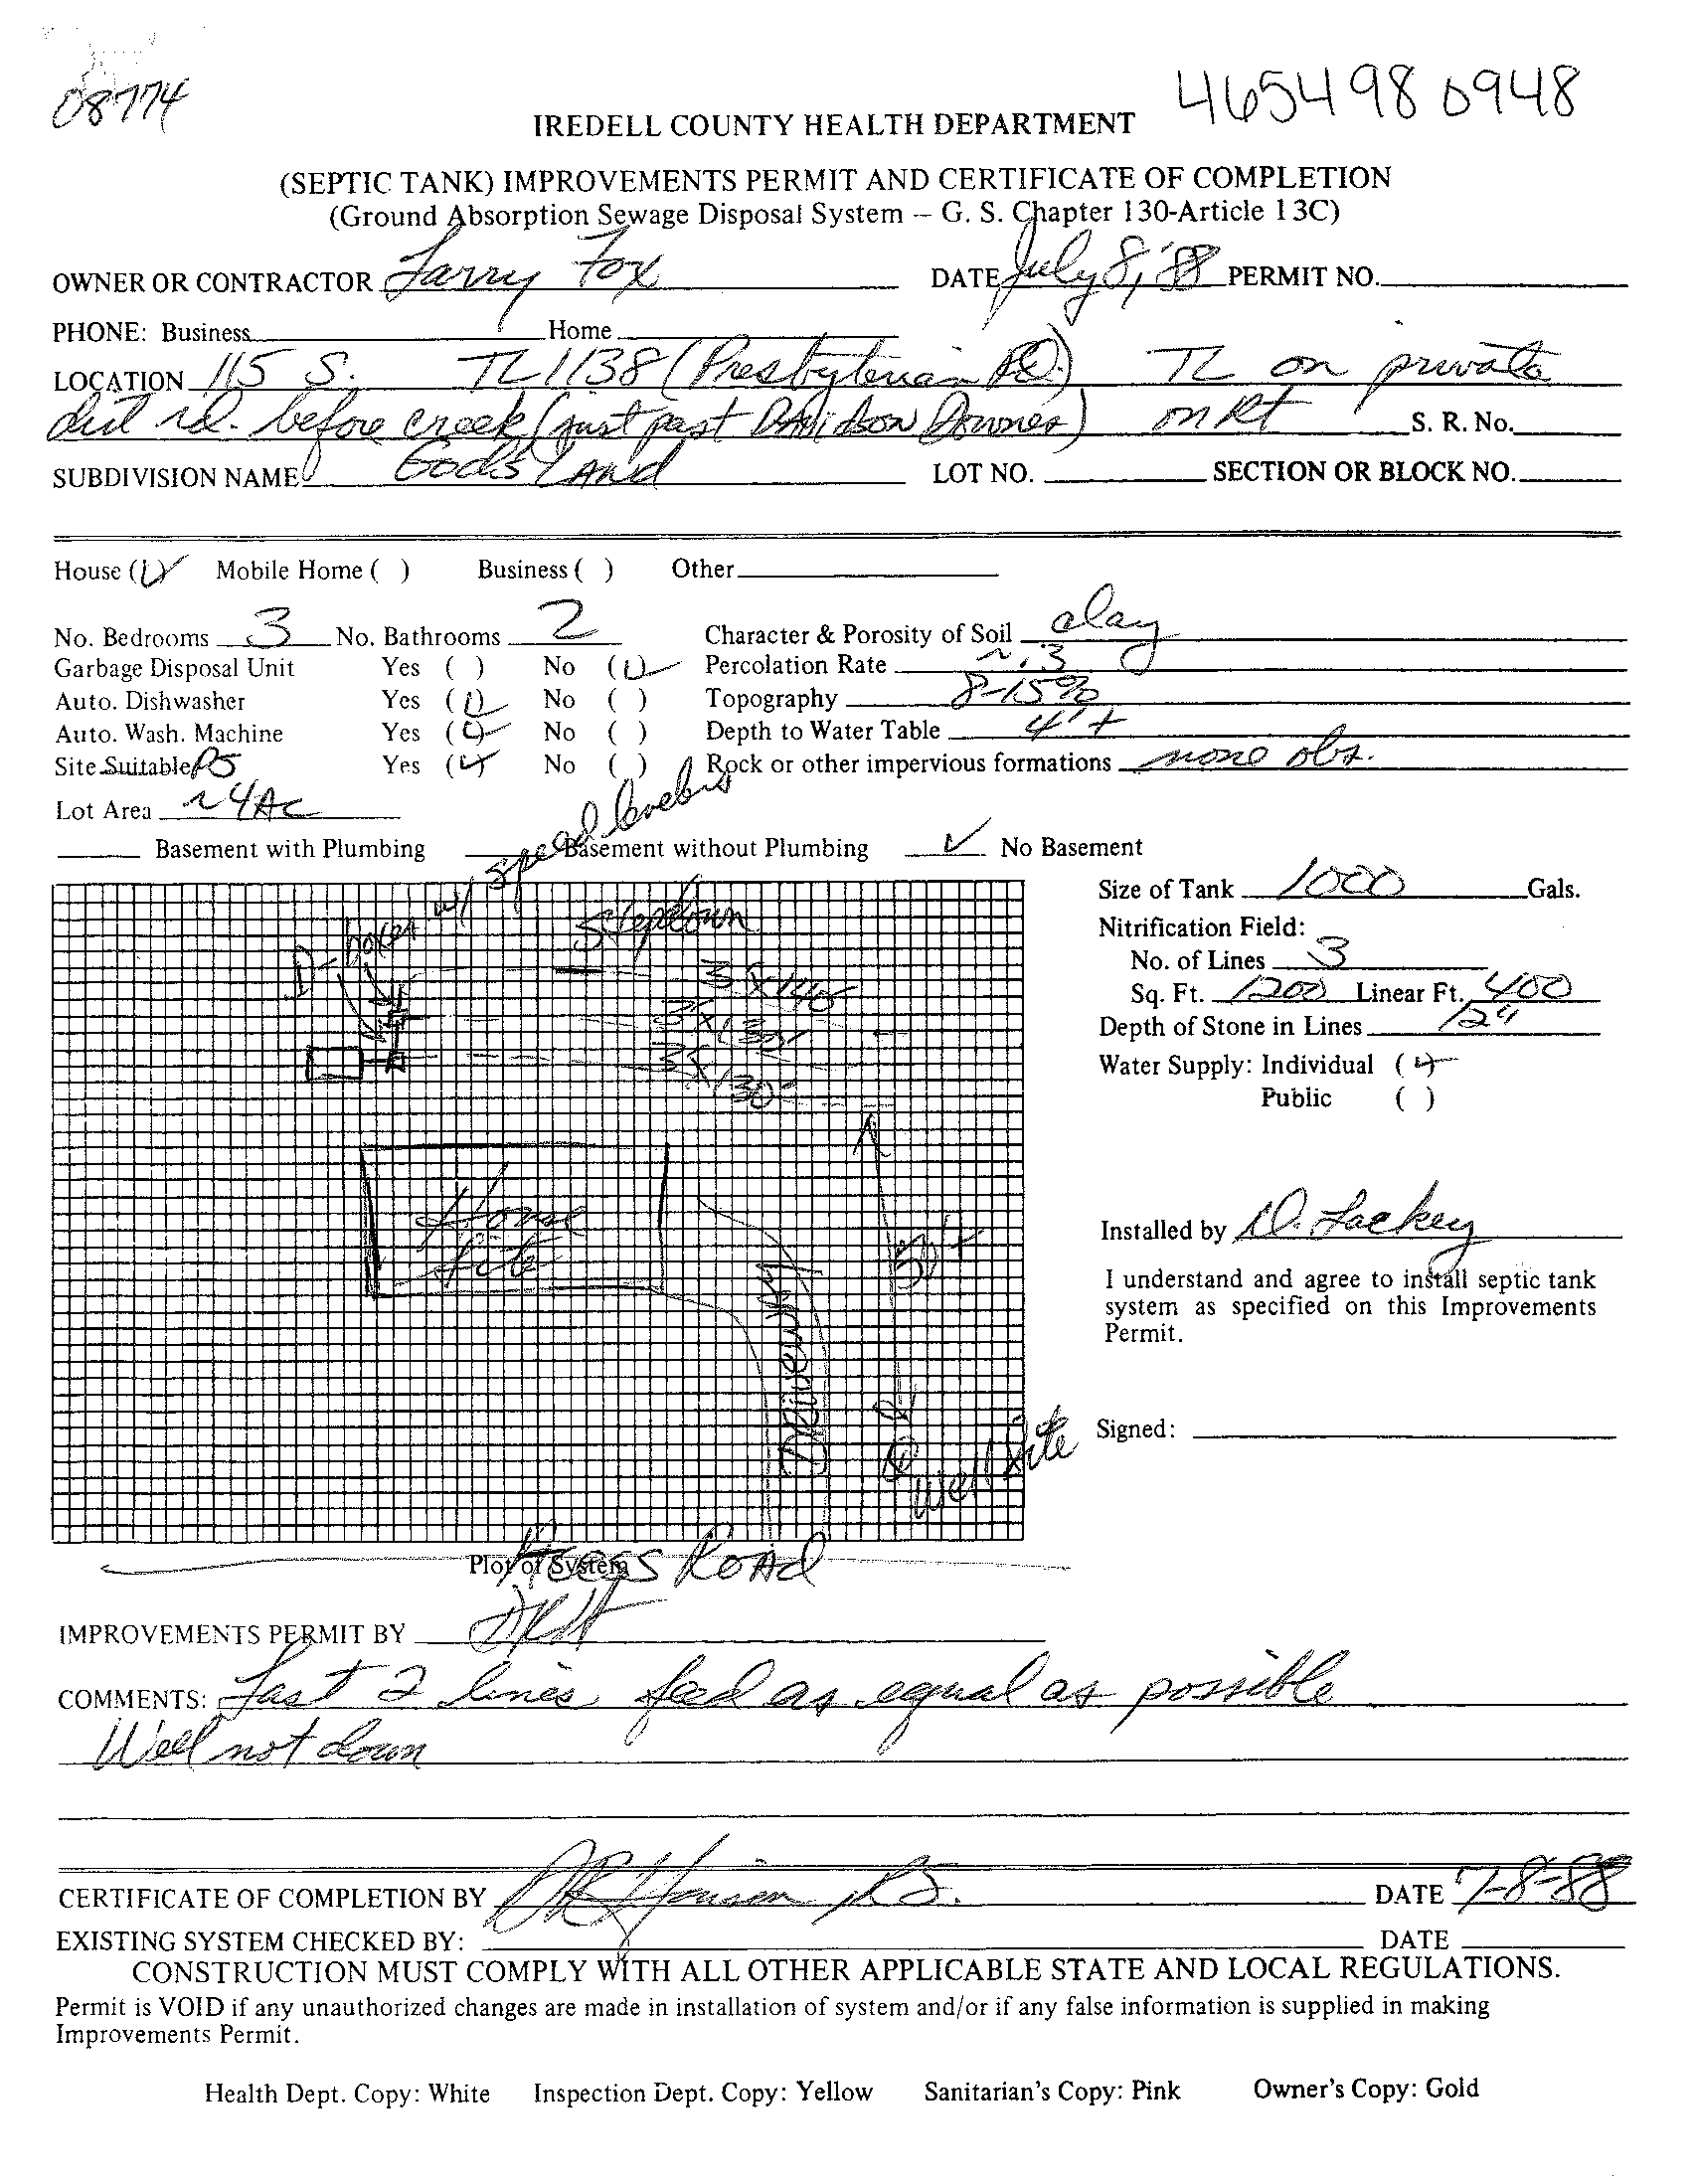 08774
4654 98 0948
IREDELL COUNTY HEALTH DEPARTMENT
(SEPTIC TANK) IMPROVEMENTS PERMIT AND CERTIFICATE OF COMPLETION
(Ground Absorption Sewage Disposal System – G. S. Chapter 130-Article 13C)
OWNER OR CONTRACTOR Larry Fox DATE July 8, '88 PERMIT NO.
PHONE: Business Home
LOCATION 115 S. TL 1138 (Presbyterian Rd.) TL on private
dirt rd. before creek (just past Davidson Downes) on Rt S. R. No.
SUBDIVISION NAME God's Land LOT NO. SECTION OR BLOCK NO.
House (✓) Mobile Home ( ) Business ( ) Other
No. Bedrooms 3 No. Bathrooms 2 Character & Porosity of Soil clay
Garbage Disposal Unit Yes ( ) No (✓) Percolation Rate ~.3
Auto. Dishwasher Yes (✓) No ( ) Topography 8-15%
Auto. Wash. Machine Yes (✓) No ( ) Depth to Water Table 4'+
Site Suitable PS Yes (✓) No ( ) Rock or other impervious formations none obs.
Lot Area ~4AC
Basement with Plumbing Basement without Plumbing ✓ No Basement
D-boxes w/ speed levelers
Stepdown
3 x 140
3 x 130
3 x 130
House
site
Driveway
50'+
Well site
Size of Tank 1000 Gals.
Nitrification Field:
No. of Lines 3
Sq. Ft. 1200 Linear Ft. 400
Depth of Stone in Lines 12"
Water Supply: Individual (✓)
Public ( )
Installed by D. Lackey
I understand and agree to install septic tank
system as specified on this Improvements
Permit.
Signed:
Plot of System
Access Road
IMPROVEMENTS PERMIT BY DRH
COMMENTS: Last 2 lines feed as equal as possible
Well not down
CERTIFICATE OF COMPLETION BY RS. DATE 7-8-88
EXISTING SYSTEM CHECKED BY: DATE
CONSTRUCTION MUST COMPLY WITH ALL OTHER APPLICABLE STATE AND LOCAL REGULATIONS.
Permit is VOID if any unauthorized changes are made in installation of system and/or if any false information is supplied in making
Improvements Permit.
Health Dept. Copy: White Inspection Dept. Copy: Yellow Sanitarian's Copy: Pink Owner's Copy: Gold